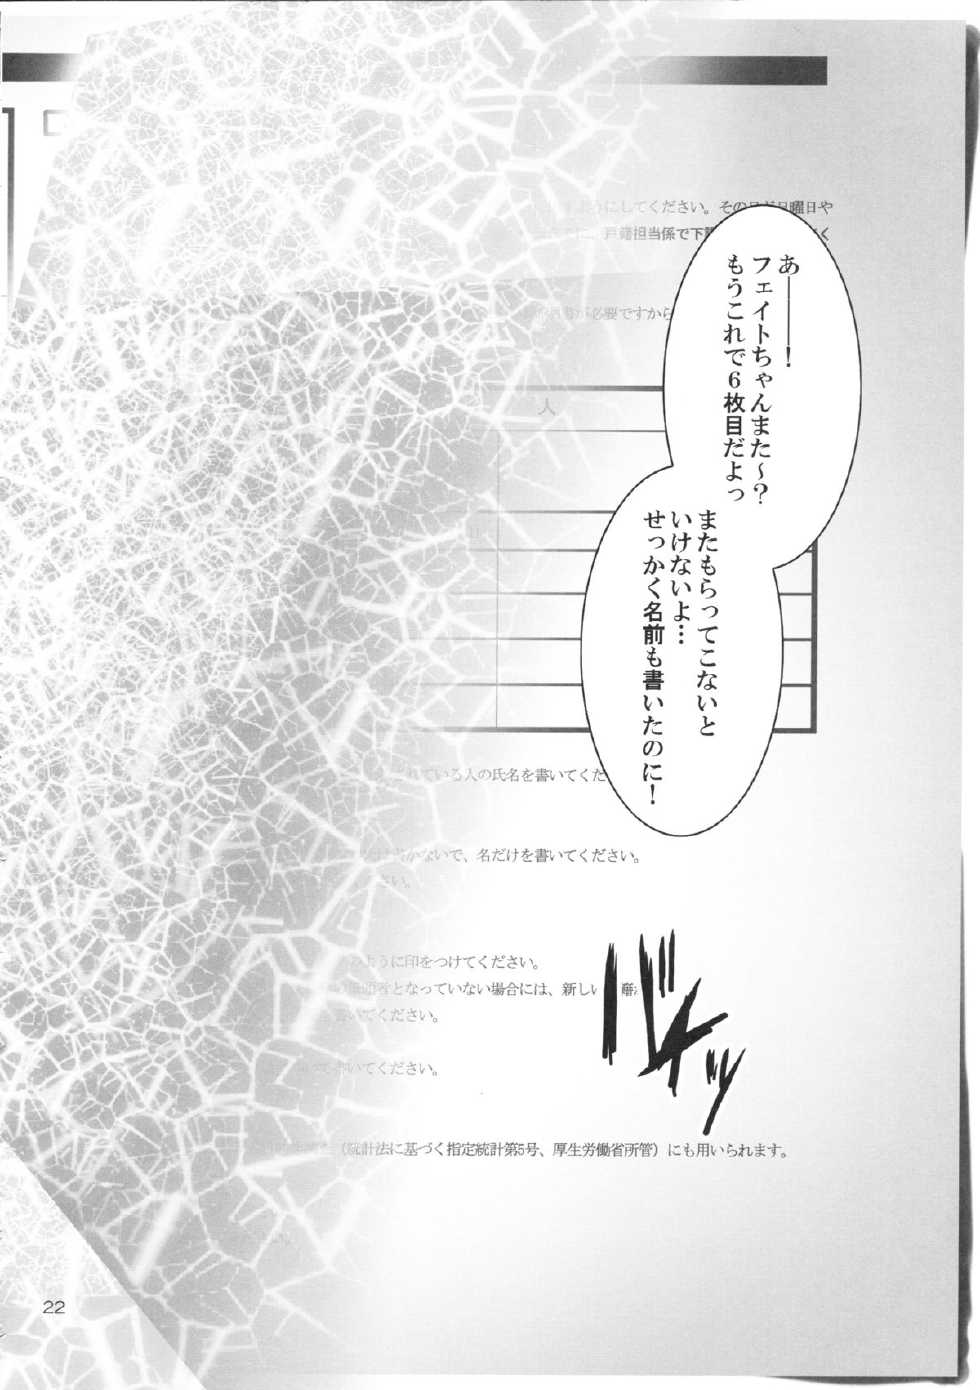 あ――――！
フェイトちゃんまた～？
もうこれで6枚目だよっ
またもらってこないと
いけないよ…
せっかく名前も書いたのに！
にしてください。その
日曜日や
戸籍担当係で下
く
が必要ですから
人
ている人の氏名を書いてくだ
ないで、名だけを書いてください。
さい。
ように印をつけてください。
となっていない場合には、新しい
いてください。
いてください。
（統計法に基づく指定統計第5号、厚生労働省所管）にも用いられます。
22